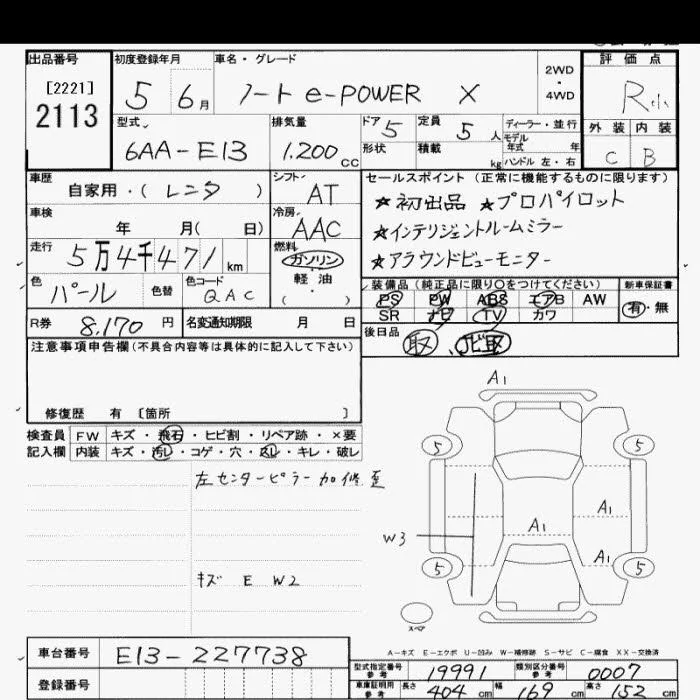 出品番号 初度登録年月 車名・グレード 評価点
[2221]
2113
5 6月 ノート e-POWER X 2WD・4WD R小
型式 排気量 ドア 定員 ディーラー・並行 外装 内装
6AA-E13 1.200cc 5 5人 モデル年式 年
形状 積載 kg ハンドル 左・右 C B
車歴 自家用・(レンタ) シフト AT セールスポイント (正常に機能するものに限ります)
★初出品 ★プロパイロット
車検 年 月( 日) 冷房 AAC ★インテリジェントルームミラー
走行 5万4千471km 燃料 ガソリン・軽油・( ) ★アラウンドビューモニター
色 パール 色替 色コード QAC 装備品 (純正品に限り○をつけてください) 新車保証書
PS PW ABS エアB AW 有・無
SR ナビ TV カワ
R券 8,170円 名変通知期限 月 日 後日品 取 ナビ取
注意事項申告欄 (不具合内容等は具体的に記入して下さい)
修復歴 有 [箇所 ]
検査員 FW キズ・飛石・ヒビ割・リペア跡・×要
記入欄 内装 キズ・汚レ・コゲ・穴・スレ・キレ・破レ
左センターピラー加修歪
キズ E W2
A1
5 5
A1
A1
W3
A1
5 5
スペア
A-キズ E-エクボ U-凹み W-補修跡 S-サビ C-腐食 XX-交換済
車台番号 E13-227738
登録番号
型式指定番号 参考 19991 類別区分番号 参考 0007
車庫証明用 参考 長さ 404cm 幅 169cm 高さ 152cm